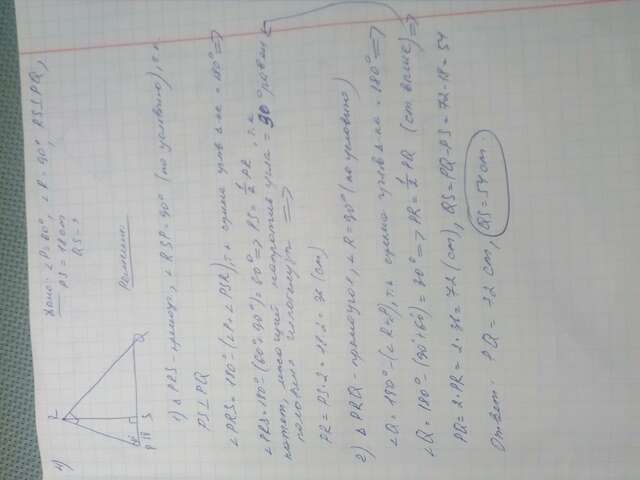 4)
R
Q
S
P 18
Дано: ∠P=60°, ∠R=90°, RS⊥PQ,
PS=18cm
QS-?
Решение:
1) △PRS-прямоуг, ∠RSP=90° (по условию), т.к.
PS⊥PQ
∠PRS=180°-(∠P+∠PSR), т.к. сумма углов △-ка=180° ⇒
∠PRS=180°-(60°+90°)=30° ⇒ PS=½PR, т.к.
катет, лежащий напротив угла=30° равен
половине гипотенузы ⇒
PR=PS·2=18·2=36 (cm)
2) △PRQ-прямоугол, ∠R=90° (по условию)
∠Q=180°-(∠R+P), т.к. сумма углов △-ка=180° ⇒
∠Q=180°-(90°+60)=30° ⇒ PR=½PQ (см. выше) ⇒
PQ=2·PR=2·36=72 (cm), QS=PQ-PS=72-18=54
Ответ: PQ=72 cm, QS=54cm.